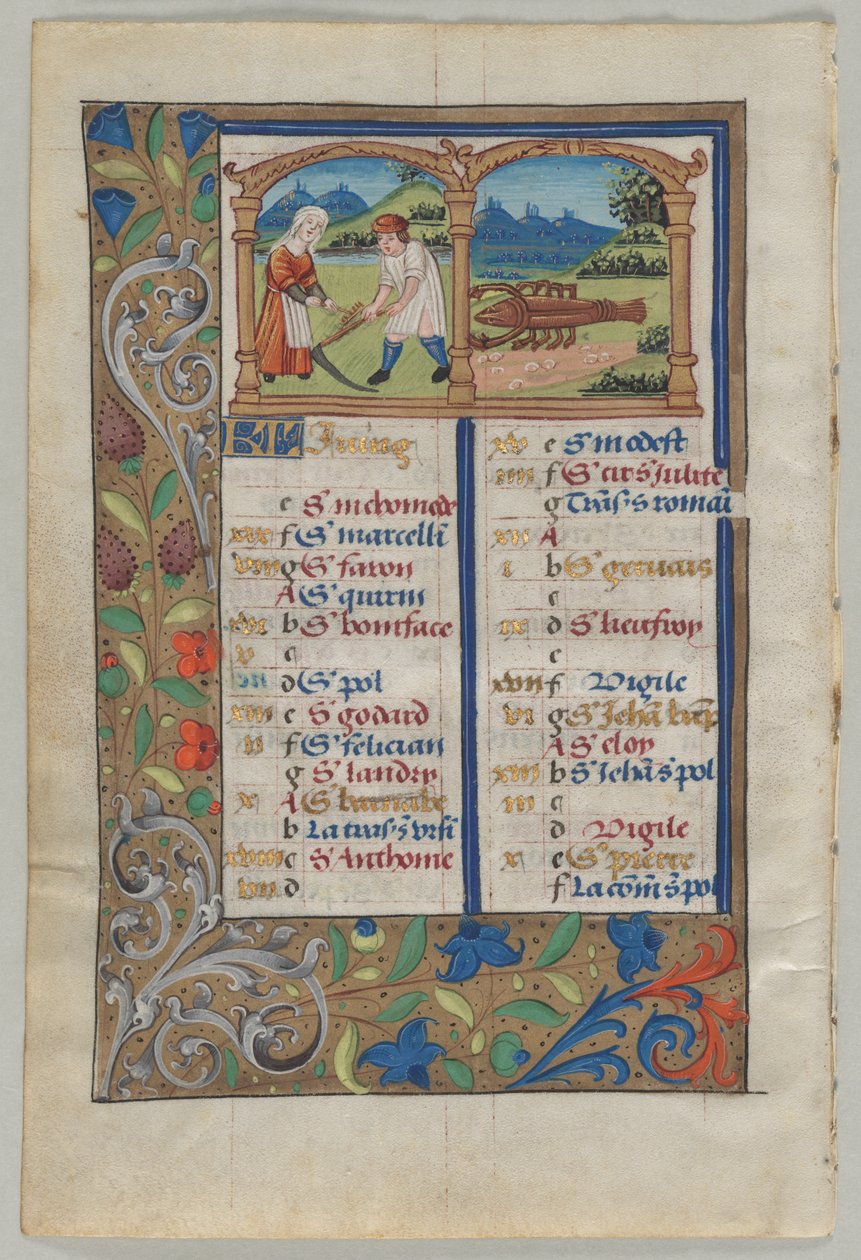 KL Juing
e S' nichomede
xix f S' marcelli
viii g S' faron
A S' quirin
xvi b S' boniface
v c
d S' pol
xiii e S' godard
ii f S' felician
g S' landry
x A S' barnabe
b La tras' s' ursi
xviii c S' Anthoine
vii d
xv e S' modest
iiii f S' cir s' Julite
g Tras' s' romai
xii A
i b S' geruais
c
ix d S' lieuffroy
e
xvii f Vigile
vi g S' Jeha bap
A S' eloy
xiiii b S' Jeha s' pol
iii c
d Vigile
xi e S' pierre
f La com s' pol